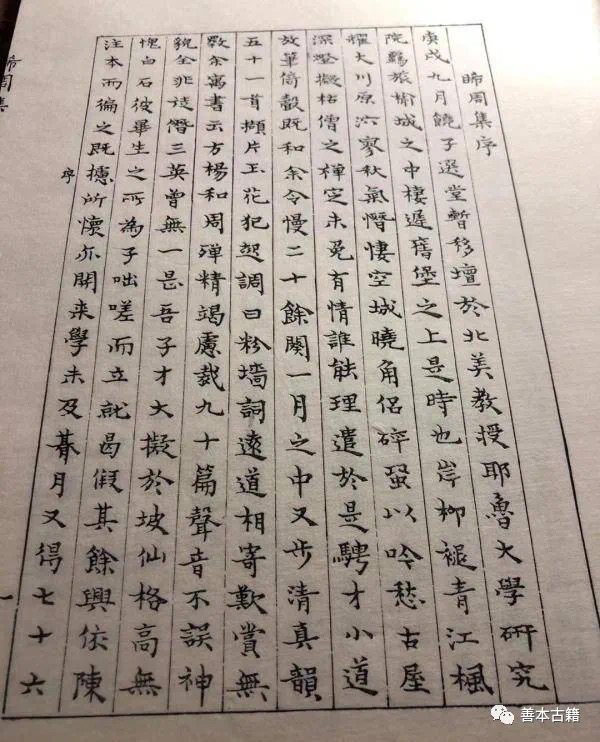 晞周集序
庚戌九月饒子選堂暫移壇於北美教授耶魯大學研究
院羇旅榆城之中棲遲舊堡之上是時也岸柳褪青江楓
耀大川原泬寥秋氣憯悽空城曉角侶碎蛩以吟愁古屋
深燈擬枯僧之禪定未免有情誰能理遣於是騁才小道
放筆倚聲既和余令慢二十餘闋一月之中又步清真韻
五十一首擷片玉花犯起調曰粉墻詞遠道相寄歎賞無
斁余寓書云方楊和周殫精竭慮裁九十篇聲音不誤神
貌全非諓僭三英曾無一是吾子才大擬於坡仙格高無
愧白石彼畢生之所為子咄嗟而立就曷假其餘興依陳
注本而徧之既攄所懷亦開來學未及朞月又得七十六
晞周集
序
一
善本古籍